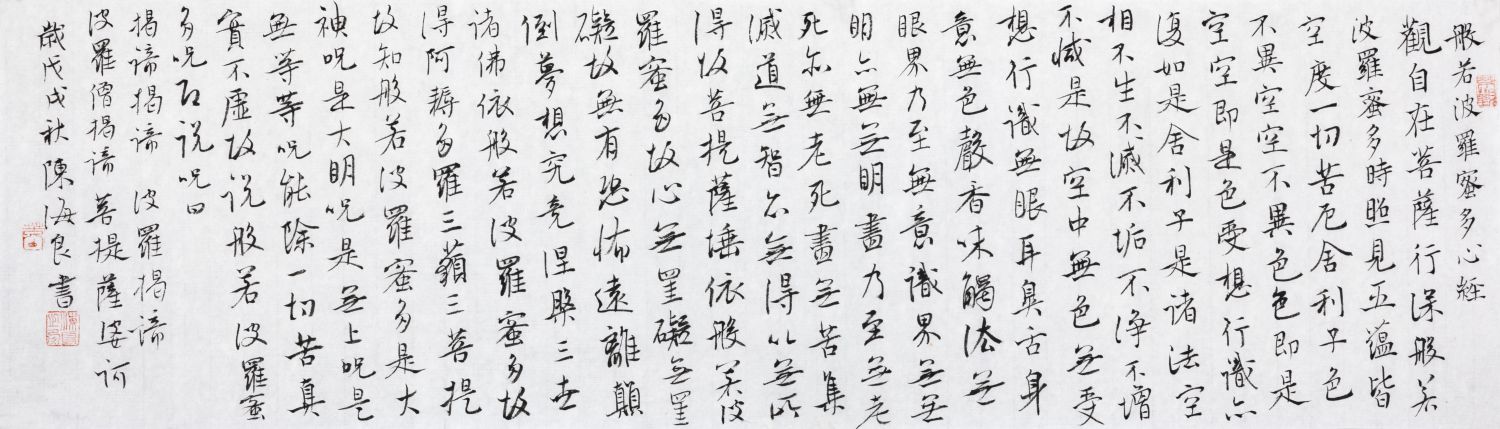 般若波羅蜜多心經
觀自在菩薩行深般若
波羅蜜多時照見五蘊皆
空度一切苦厄舍利子色
不異空空不異色色即是
空空即是色受想行識亦
復如是舍利子是諸法空
相不生不滅不垢不淨不增
不減是故空中無色無受
想行識無眼耳鼻舌身
意無色聲香味觸法無
眼界乃至無意識界無無
明亦無無明盡乃至無老
死亦無老死盡無苦集
滅道無智亦無得以無所
得故菩提薩埵依般若波
羅蜜多故心無罣礙無罣
礙故無有恐怖遠離顛
倒夢想究竟涅槃三世
諸佛依般若波羅蜜多故
得阿耨多羅三藐三菩提
故知般若波羅蜜多是大
神咒是大明咒是無上咒是
無等等咒能除一切苦真
實不虛故說般若波羅蜜
多咒即說咒曰
揭諦揭諦 波羅揭諦
波羅僧揭諦 菩提薩婆訶
歲戊戌秋陳海良書